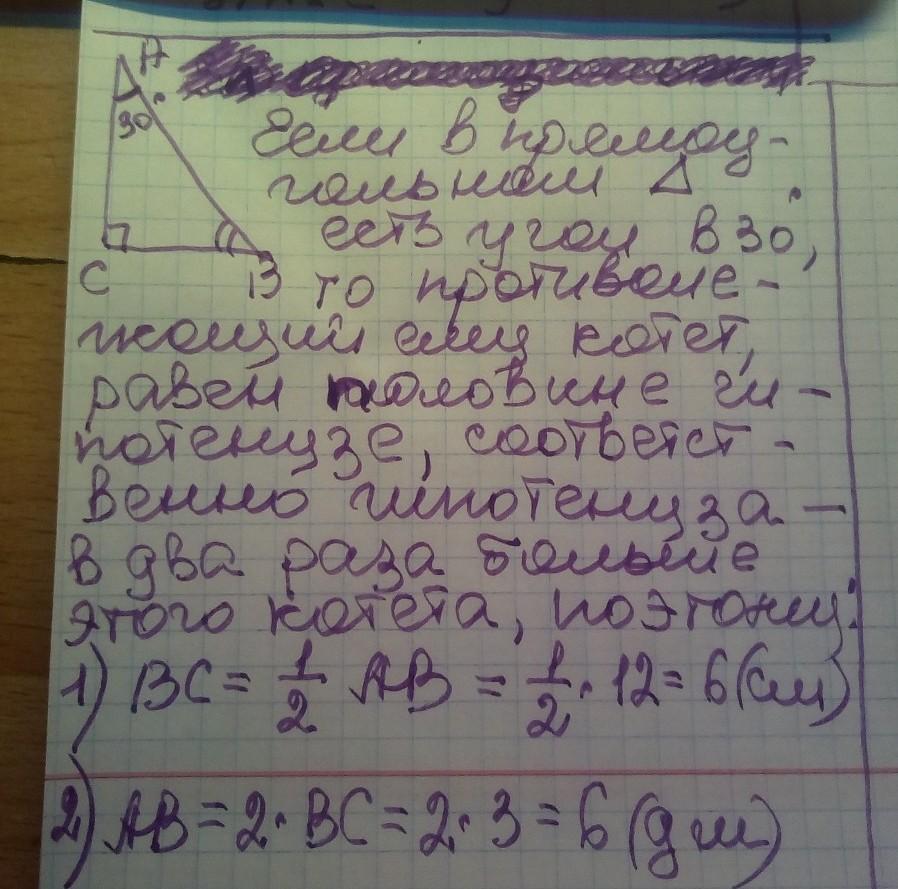 A
30°
C
B
Если в прямоу-
гольном Δ
есть угол в 30°,
то противоле-
жащий ему катет,
равен половине ги-
потенузе, соответст-
венно гипотенуза -
в два раза больше
этого катета, поэтому:
1) BC = 1/2 AB = 1/2 · 12 = 6 (см)
2) AB = 2 · BC = 2 · 3 = 6 (дм)